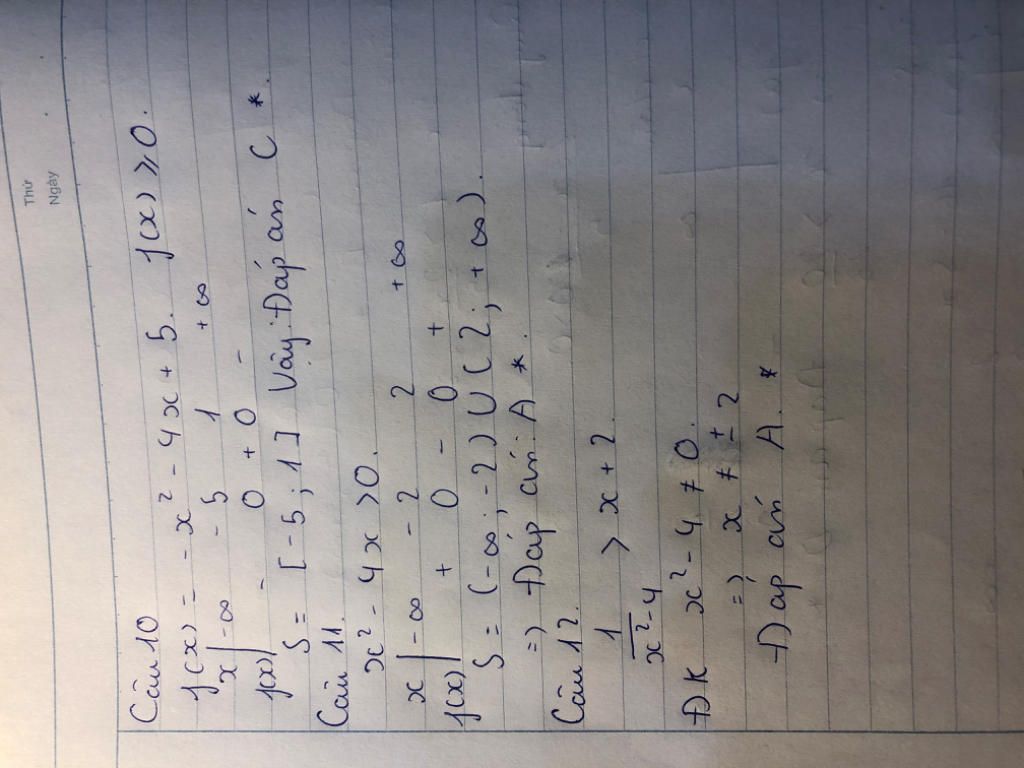 Thứ
Ngày
Câu 10
f(x) = - x² - 4x + 5. f(x) ≥ 0.
x | -∞ - 5 1 +∞
f(x) | - 0 + 0 -
S = [-5 ; 1] Vậy: Đáp án C *.
Câu 11.
x² - 4x > 0.
x | -∞ - 2 2 +∞
f(x) | + 0 - 0 +
S = (-∞ ; -2) ∪ (2 ; +∞).
=> Đáp án: A *.
Câu 12.
1/x² - 4 > x + 2.
ĐK x² - 4 ≠ 0.
=> x ≠ ± 2
Đáp án A. *